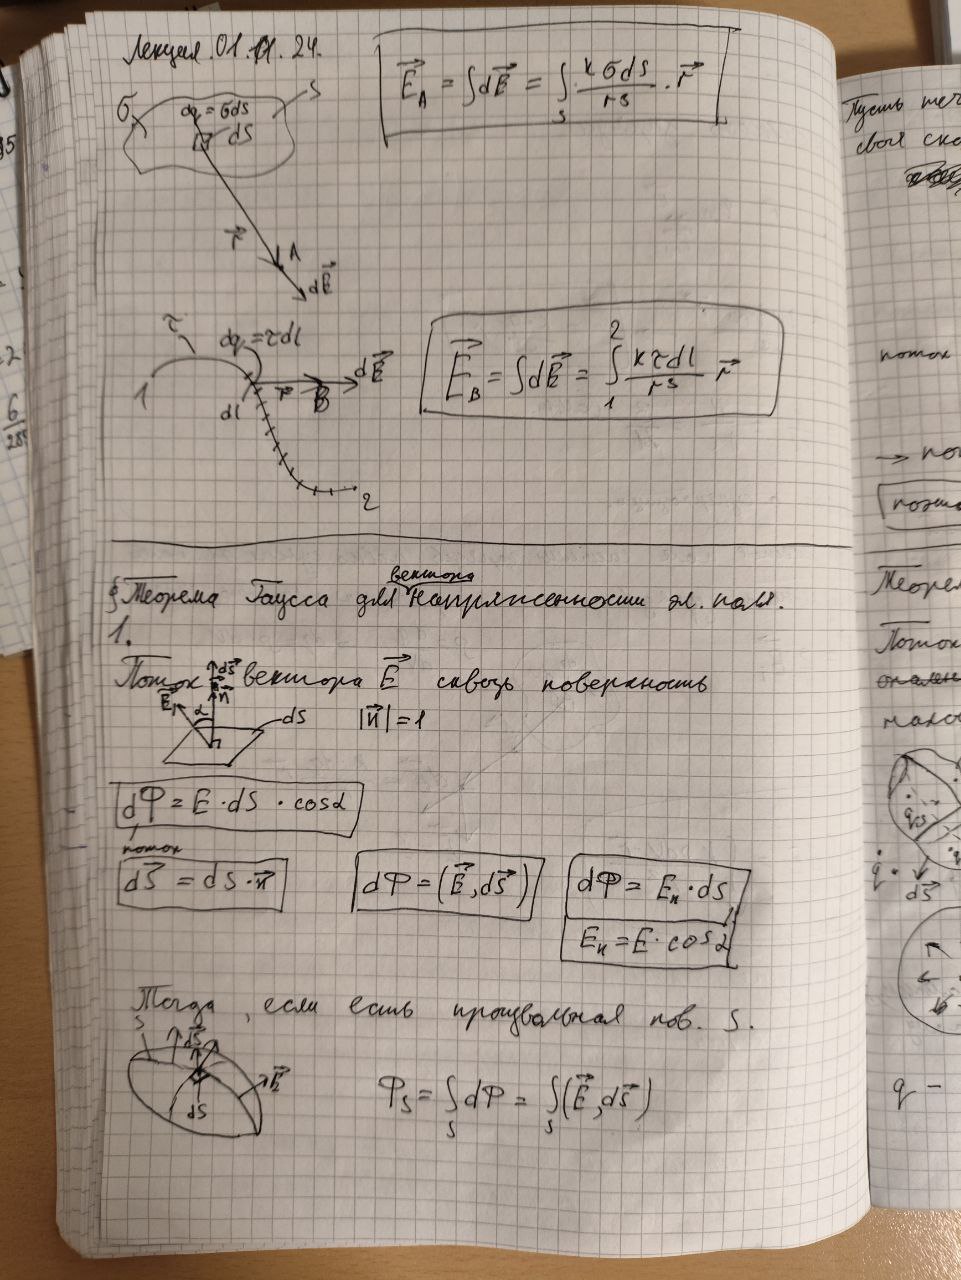 Лекция. 01.11.24.
σ
dq = σds
S
dS
r⃗
A
dE⃗
E⃗_A = ∫dE⃗ = ∫_S kσds/r³ · r⃗
τ
dq = τdl
1
dl
r⃗
B
dE⃗
2
E⃗_B = ∫dE⃗ = ∫_1^2 kτdl/r³ r⃗
§ Теорема Гаусса для вектора напряженности эл. поля.
1.
Поток вектора E⃗ сквозь поверхность
dS⃗
n⃗
E⃗
α
dS
|n⃗| = 1
dФ = E · dS · cosα
поток
dS⃗ = dS · n⃗
dФ = (E⃗, dS⃗)
dФ = Eₙ · dS
Eₙ = E · cosα
Тогда, если есть произвольная пов. S.
S
dS⃗
E⃗
dS
Ф_S = ∫_S dФ = ∫_S (E⃗, dS⃗)
Пусть
своя
поток
→
Теорем
Поток
q
dS⃗
q –